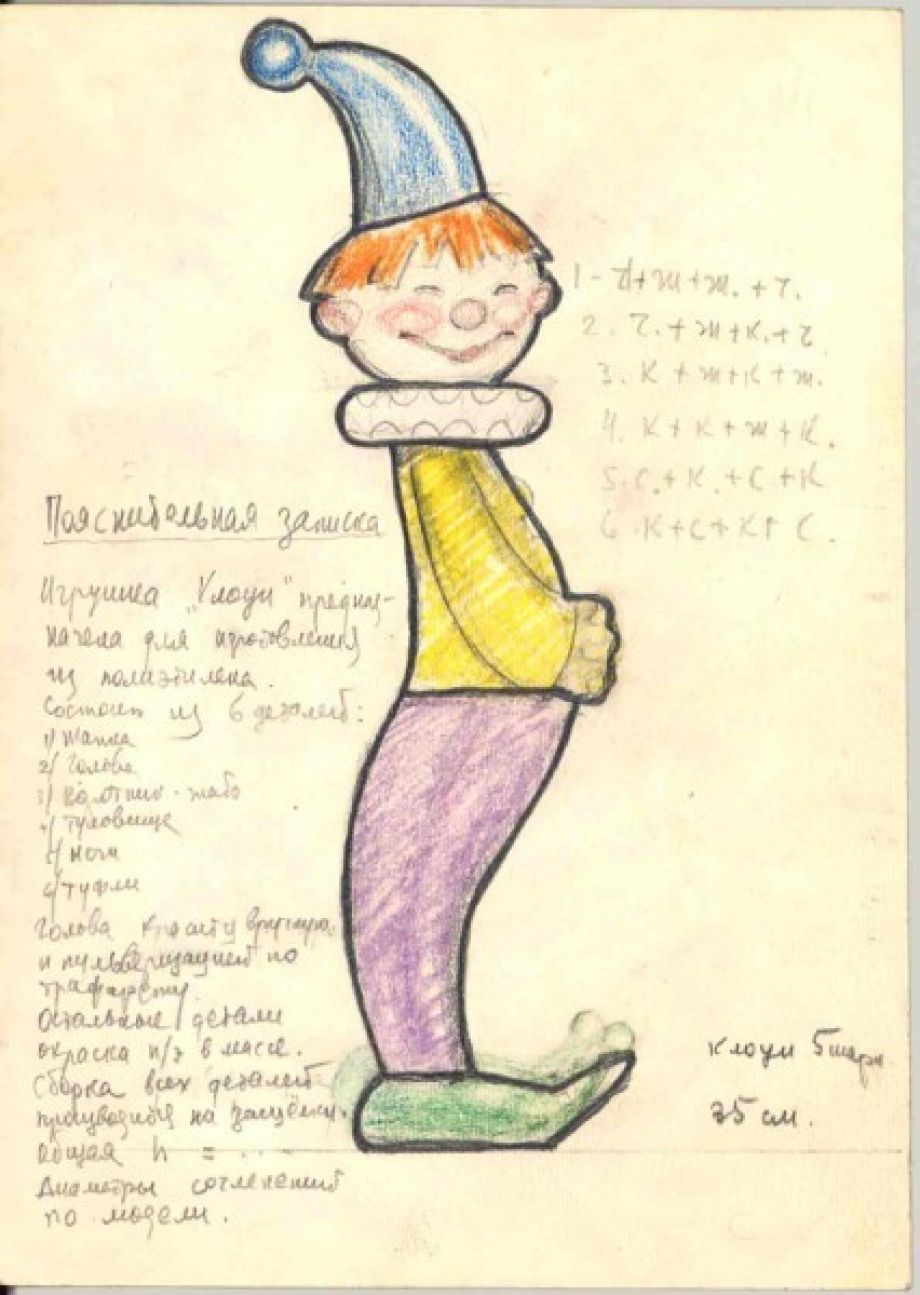 Пояснительная записка
Игрушка „Клоун" предназ-
начена для изготовления
из полиэтилена.
Состоит из 6 деталей:
1/ шапка
2/ голова
3/ воротник-жабо
4/ туловище
5/ ноги
6/ туфли
Голова красить вручную
и пульверизацией по
трафарету.
Остальные детали
окраска п/э в массе.
Сборка всех деталей
производится на защёлки.
общая h = ...
Диаметры сочленений
по модели.
1 - + ж + ж. + г.
2. г. + ж + к. + г.
3. к + ж + к + ж.
4. к + к + ж + к.
5. с. + к. + с + к
6. к + с + к + с.
клоун 5
35 см.